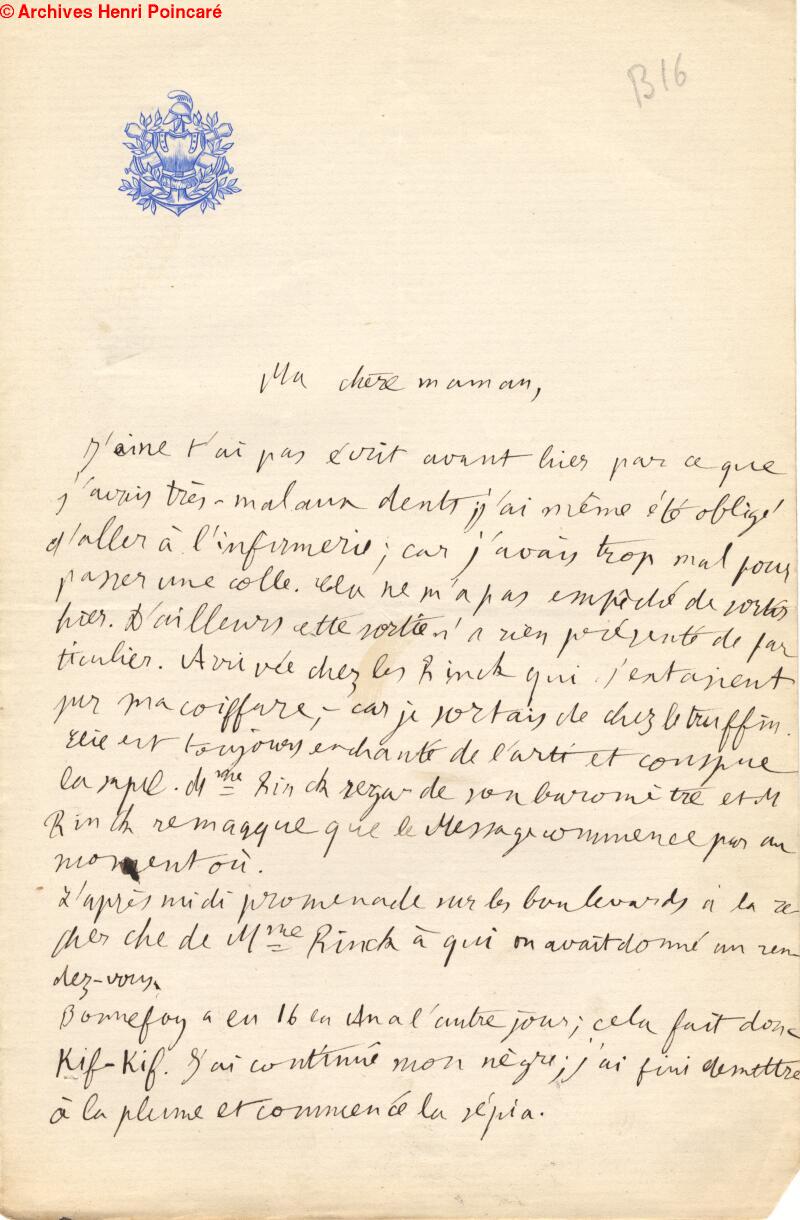 © Archives Henri Poincaré
B16
Ma chère maman,
J'aine t'ai pas écrit avant hier par ce que
j'avais très-mal aux dents, j'ai même été obligé
d'aller à l'infirmerie; car j'avais trop mal pour
passer une colle. Cela ne m'a pas empêché de sortir
hier. D'ailleurs cette sortie n'a rien présenté de par
ticulier. Arrivée chez les Rinck qui s'extasient
sur ma coiffure, – car je sortais de chez letruffin.
Elie est toujours enchanté de l'arti et conspue
la sapl. Mme Rinck regarde son baromètre et M
Rinck remarque que le Message commence par au
moment où.
L'après midi promenade sur les boulevards à la re-
cherche de Mme Rinck à qui on avait donné un ren-
dez-vous.
Bonnefoy a eu 16 en Ana l'autre jour; cela fait donc
Kif-Kif. J'ai continué mon nègre; j'ai fini de mettre
à la plume et commencé la sépia.